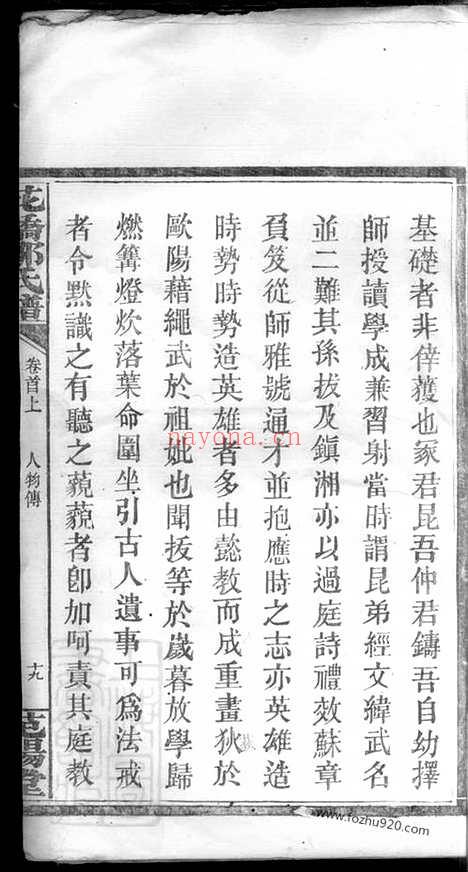 基礎者非倖獲也冢君昆吾仲君鑄吾自幼擇
師授讀學成兼習射當時謂昆弟經文緯武名
並二難其孫拔及鎭湘亦以過庭詩禮效蘇章
負笈從師雅號通才並抱應時之志亦英雄造
時勢時勢造英雄者多由懿教而成重畫狄於
歐陽藉繩武於祖妣也聞拔等於歲暮放學歸
燃篝燈炊落葉命圍坐引古人遺事可爲法戒
者令默識之有聽之藐藐者卽加呵責其庭教
花橋鄒氏譜
卷首上
人物傳
十九
范陽堂
nayona.cn
www.fozhu920.com